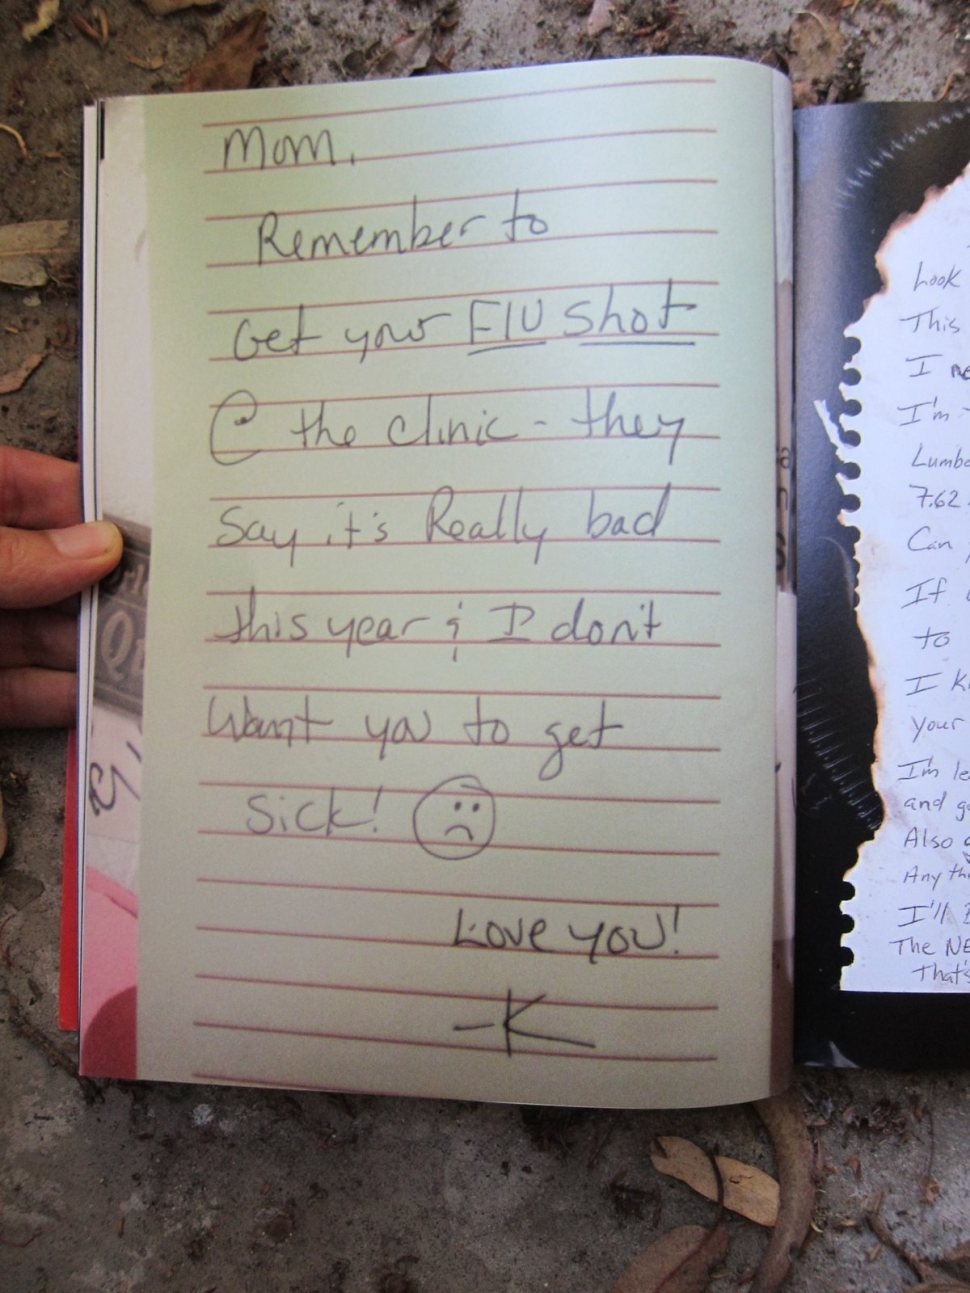 Mom,
Remember to
Get your Flu Shot
@ the clinic - they
Say it's Really bad
this year & I don't
Want you to get
Sick! ☹
Love you!
-K
Look
This
I
I'm
7.62
Can
If
to
I
your
I'm
and
Also
I'll
The
That's